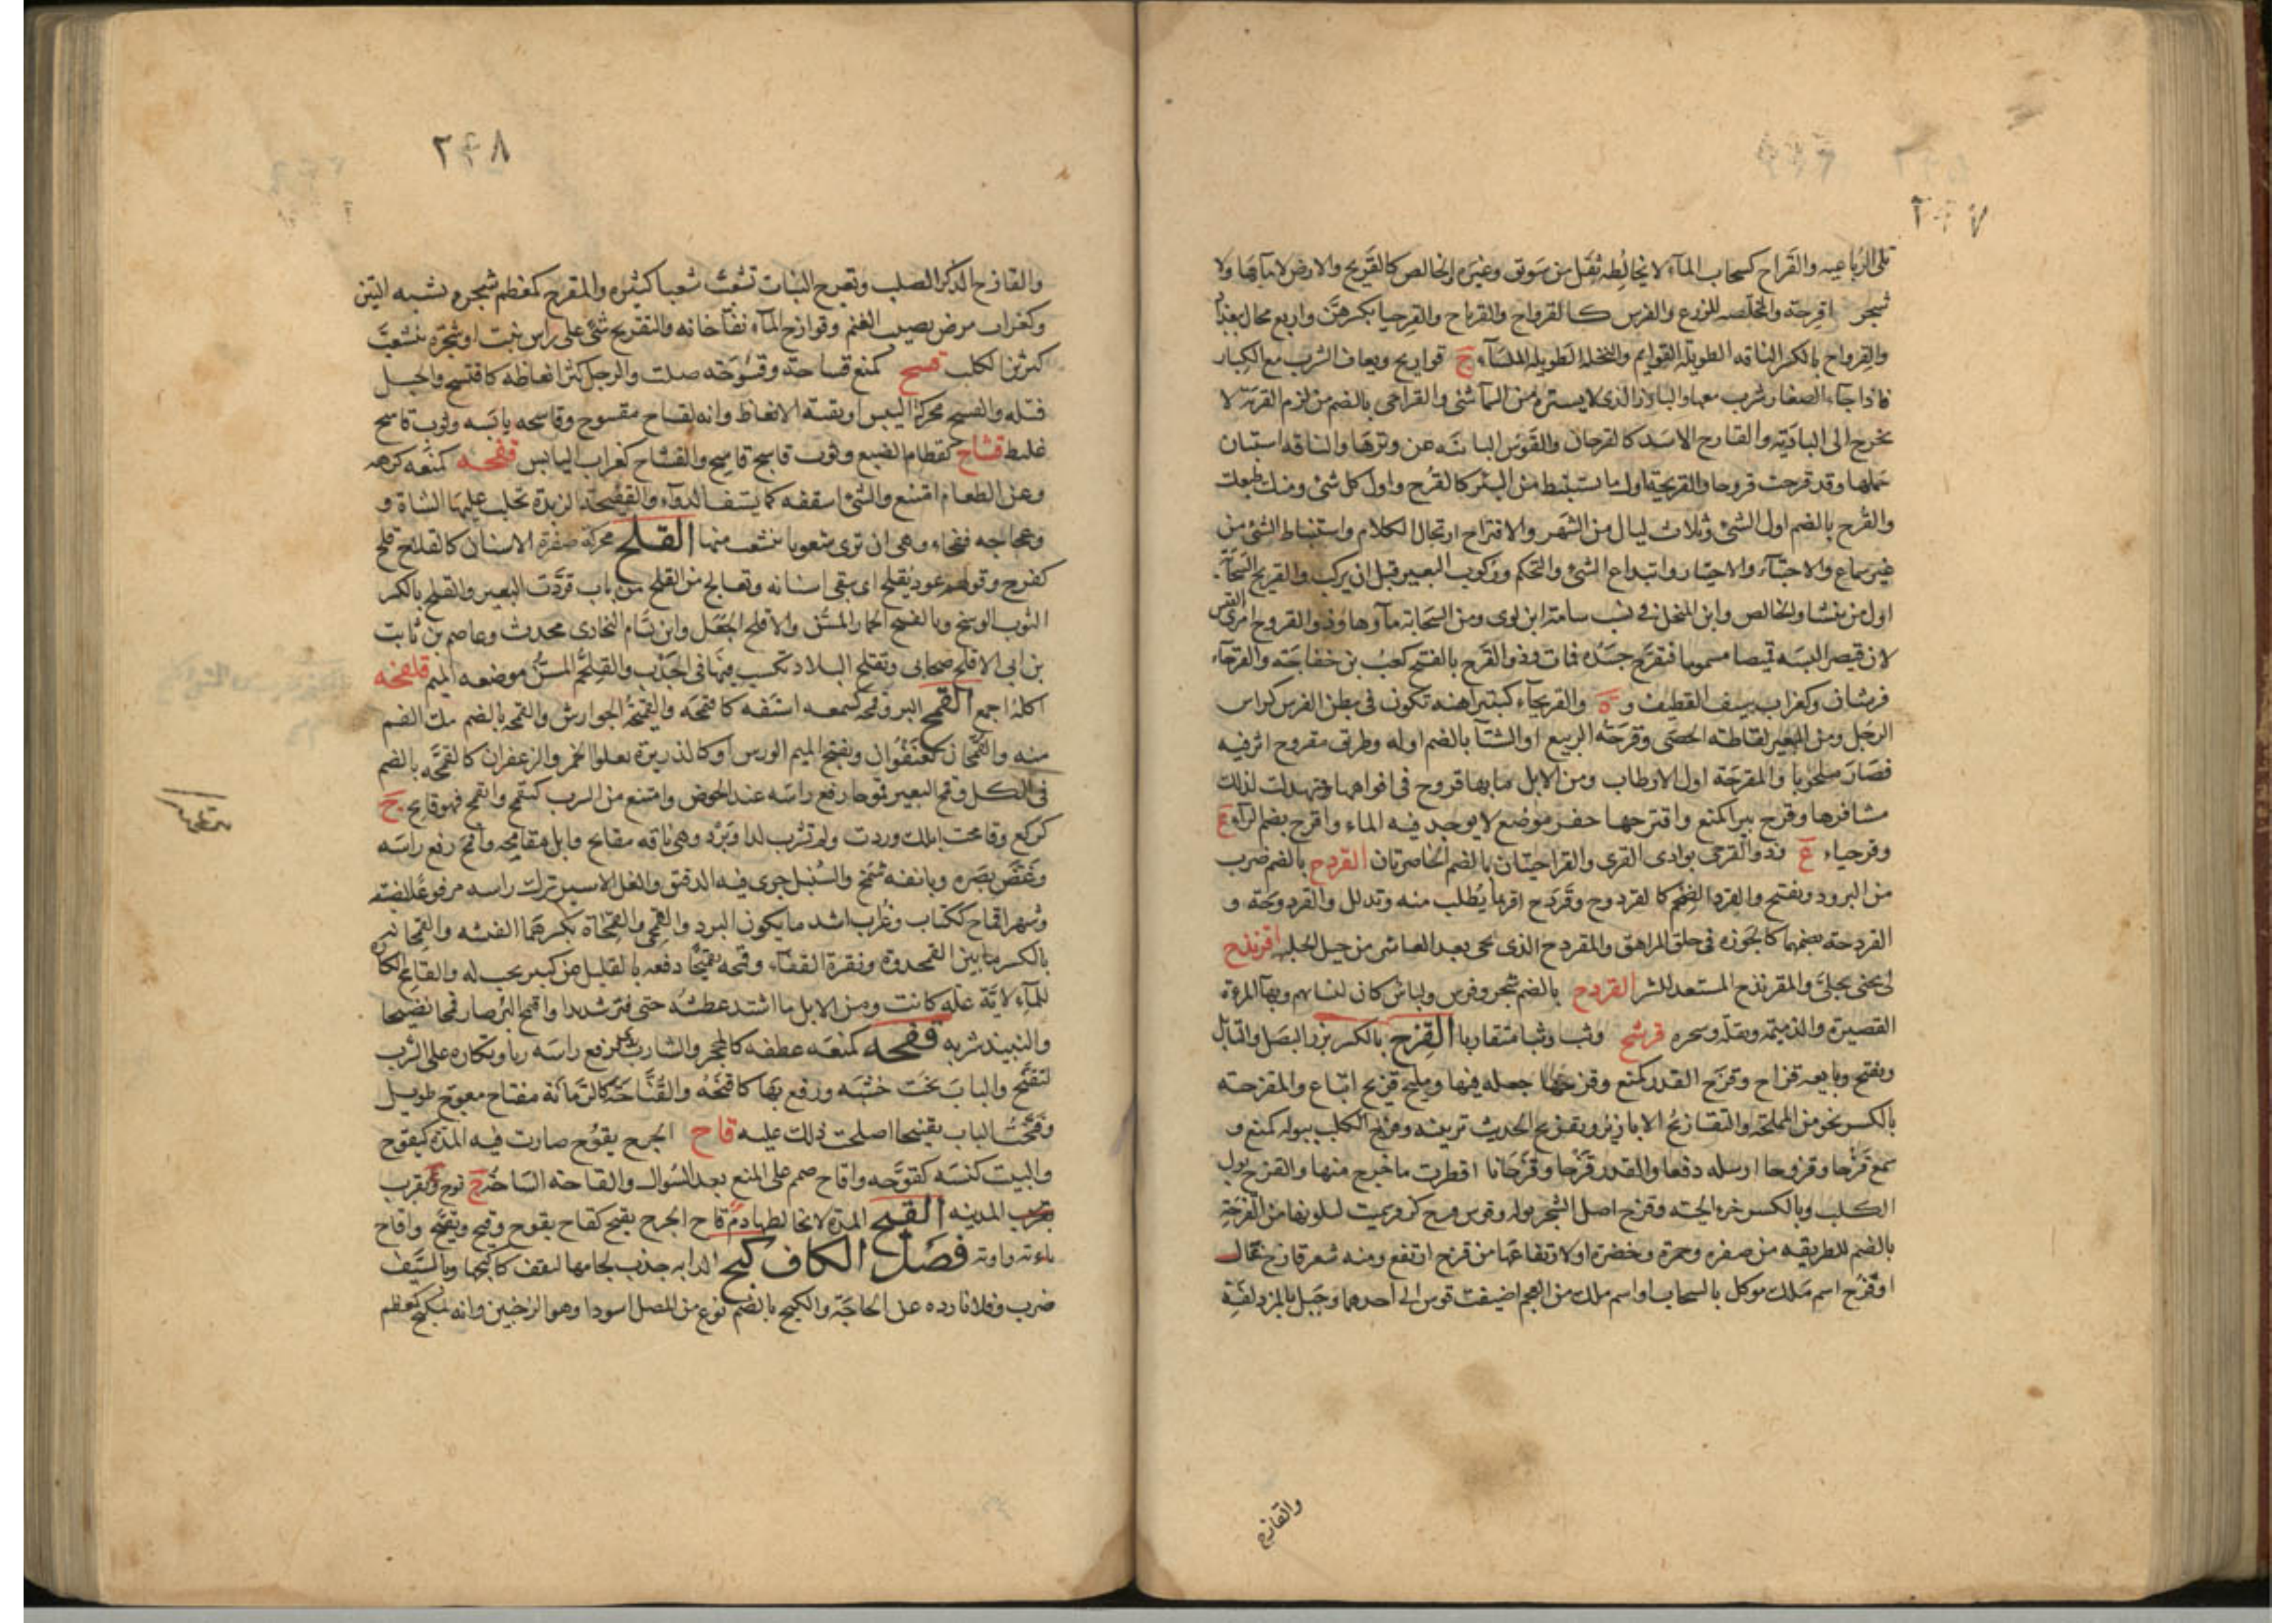 ٢٤٧
تلى الرباعيه والقراح كسحاب المآء لا يخالطه ثفل من سويق وغيره والخالص كالقريح والارض لا مآء بها ولا
شجر اقرحة والمخلصه للزرع والغرس كالقرواح والقرياح والقرحيا بكسرهن واربع محال ببغداد
والقرواح بالكسر الناقه الطويلة القوايم والنخله الطويله الملسآء ج قواريح ويعاف الشرب مع الكبار
فاذا جآء الصغار شرب معها والبارز الذى لا يستره من السمآ شئ والقراحى بالضم من لزم القرية لا
يخرج الى البادية والقارح الاسد كالقرحان والقوس البائنه عن وترها والناقه استبان
حملها وقد قرحت قروحا والقريحة اول ما يستنبط من البئر كالقرح واول كل شئ ومنك طبعك
والقرح بالضم اول الشئ وثلاث ليال من الشهر والاقتراح ارتجال الكلام واستنباط الشئ من
غير سماع والاجتبآء والاختيار وابتداع الشئ والتحكم وركوب البعير قبل ان يركب والقريح السحابة
اول من ينشا والخالص وابن المنخل فى نسب سامة ابن لوى ومن السحابة مآوها وذو القروح امرئ القيس
لان قيصر البسه قميصا مسموما فتقرح جسده فمات وذو القرح بالفتح كعب بن خفاجة والقرحآء
فرسان وكغراب سيف القطيف و ة والقريحآء كبتيرآ هنه تكون فى بطن الفرس كراس
الرجل ومن البعير لقاطة الحصى وقرحة الربيع او الشتآ بالضم اوله وطريق مقروح اثر فيه
فصار ملحوبا والمقرحة اول الارطاب ومن الابل ما بها قروح فى افواهها فتهدلت لذلك
مشافرها وقرح بيرا كمنع واقترحها حفر موضع لا يوجد فيه الماء واقرح بضم الرآء ع
وقرحياء ع وذو القرحى بوادى القرى والقراحيتان بالضم الخاصرتان القردح بالضم ضرب
من البرود ويفتح والقرد الضخم كالقردوح وقردح اقر بما يطلب منه وتدلل والقردوحة و
القردحة بضمهما كالجوزة فى حلق المراهق والمقردح الذى يجى بعد العاشر من خيل الحلبه اقرنذح
لى تجنى على والمقرنذح المستعد للشر القردح بالضم شجر وفرس ولباس كان لنسائهم وبهآ المراة
القصيرة والذميمه وبقلة وسحره قرشح وثب وثبا متقاربا القزح بالكسر بزر البصل والتابل
ويفتح وبايعه قزاح وقزح القدر كمنع وقزحها جعله فيها ومليح قزيح اتباع والمقزحة
بالكسر نحو من المملحة والتقازيح الابازير وتقزيح الحديث تزيينه وقزح الكلب ببوله كمنع و
سمع قزحا وقزوحا ارسله دفعا والقدر قزحا وقزحانا اقطرت ما خرج منها والقزح بول
الكلب وبالكسر خرء الحية وقزح اصل الشجر بوله وقوس قزح كزفر سميت لتلونها من القزحة
بالضم للطريقه من صفره وحمرة وخضرة او لارتفاعها من قزح ارتفع ومنه شعر قازح غال
او قزح اسم ملك موكل بالسحاب او اسم ملك من العجم اضيفت قوس الى احدهما وجبل بالمزدلفة
والقازح
٢٤٨
والقازح الذكر الصلب وتقزح النبات تشعب شعبا كثيره والمقزح كمعظم شجره تشبه التين
وكغراب مرض يصيب الغنم وقوازح المآء نفاخاته والتقزيح شئ على راس نبت او شجره يتشعب
كبرثن الكلب قسح كمنع قساحة وقسوحة صلب والرجل كثر انعاظه كاقسح والحبل
فتله والقسح محركة اليبس او بقية الانعاظ وانه لقساح مقسوح وقاسحه يابسه وثوب قاسح
غليظ قشاح كقطام الضبع وثوب قاشح قاسح والقشاح كغراب اليابس قفحه كمنعه كرهه
وعن الطعام امتنع والشئ استفه كما يستف الدوآء والقفيحة الزبدة تحلب عليها الشاة و
وعجاجه قفحاء وهى ان ترى شعوبا تنشعب منها القلح محركة صفرة الاسنان كالقلاح قلح
كفرح وقولهم عود يقلح اى ينقى اسنانه وتعالج من القلح من باب قردت البعير والقلح بالكسر
الثوب الوسخ وبالفتح الحمار المسن والاقلح الجعل وابن بسام البخارى محدث وعاصم بن ثابت
بن ابى الاقلح صحابى وتقلح البلاد تكسب فيها فى الجدب والقلحم المسن موضعه الميم قلفحه
اكله اجمع القمح البر وقمحه كسمعه استفه كاقتمحه والقميحة الجوارش والقمحة بالضم ملء الفم
منه والقمحان كعنفوان ويفتح الميم الورس او كالذريرة يعلو الخمر والزعفران كالقمحة بالضم
فى الكل وقمح البعير قموحا رفع راسه عند الحوض وامتنع من الشرب كتقمح وانقمح فهو قامح ج
كركع وقامحت ابلك وردت ولم تشرب لدا او برد وهى ناقه مقامح وابل مقامحه واقمح رفع راسه
وغض بصره وبانفه شمخ والسنبل جرى فيه الدقيق والغل الاسير ترك راسه مرفوعا لضيقه
وشهرا قماح ككتاب وغراب اشد ما يكون البرد والقمحى والقمحاة بكسرهما الفيشه والقمحانه
بالكسر ما بين القمحدوة ونقرة القفآء وقمحه تقميحا دفعه بالقليل عن كثير يجب له والقامح الكاره
للمآء لاية علة كانت ومن الابل ما اشتد عطشه حتى فتر شديدا واقمح البر صار قمحا نضيجا
والنبيذ شربه قنحه كمنعه عطفه كالمحجر والشارب روى فرفع راسه ريا وتكاره على الشرب
كتقنح والباب نحت خشبه ورفع بها كاقنحه والقناحة كالرمانة مفتاح معوج طويل
وقنحت الباب تقنيحا اصلحت ذلك عليه قاح الجرح يقوح صارت فيه المدة كيقوح
والبيت كنسه كقوحه واقاح صمم على المنع بعد السوال والقاحة الساحة ج قوح و ع بقرب
المدينه القيح المدة لا يخالطها دم قاح الجرح يقيح كقاح يقوح وقيح وتقيح واقاح
فصل الكاف كبح الدابه جذب لجامها لتقف كاكبحها وبالسيف
ضرب وفلانا رده عن الحاجة والكبح بالضم نوع من المصل اسود او هو الرخبين وانه لمكبح كمعظم